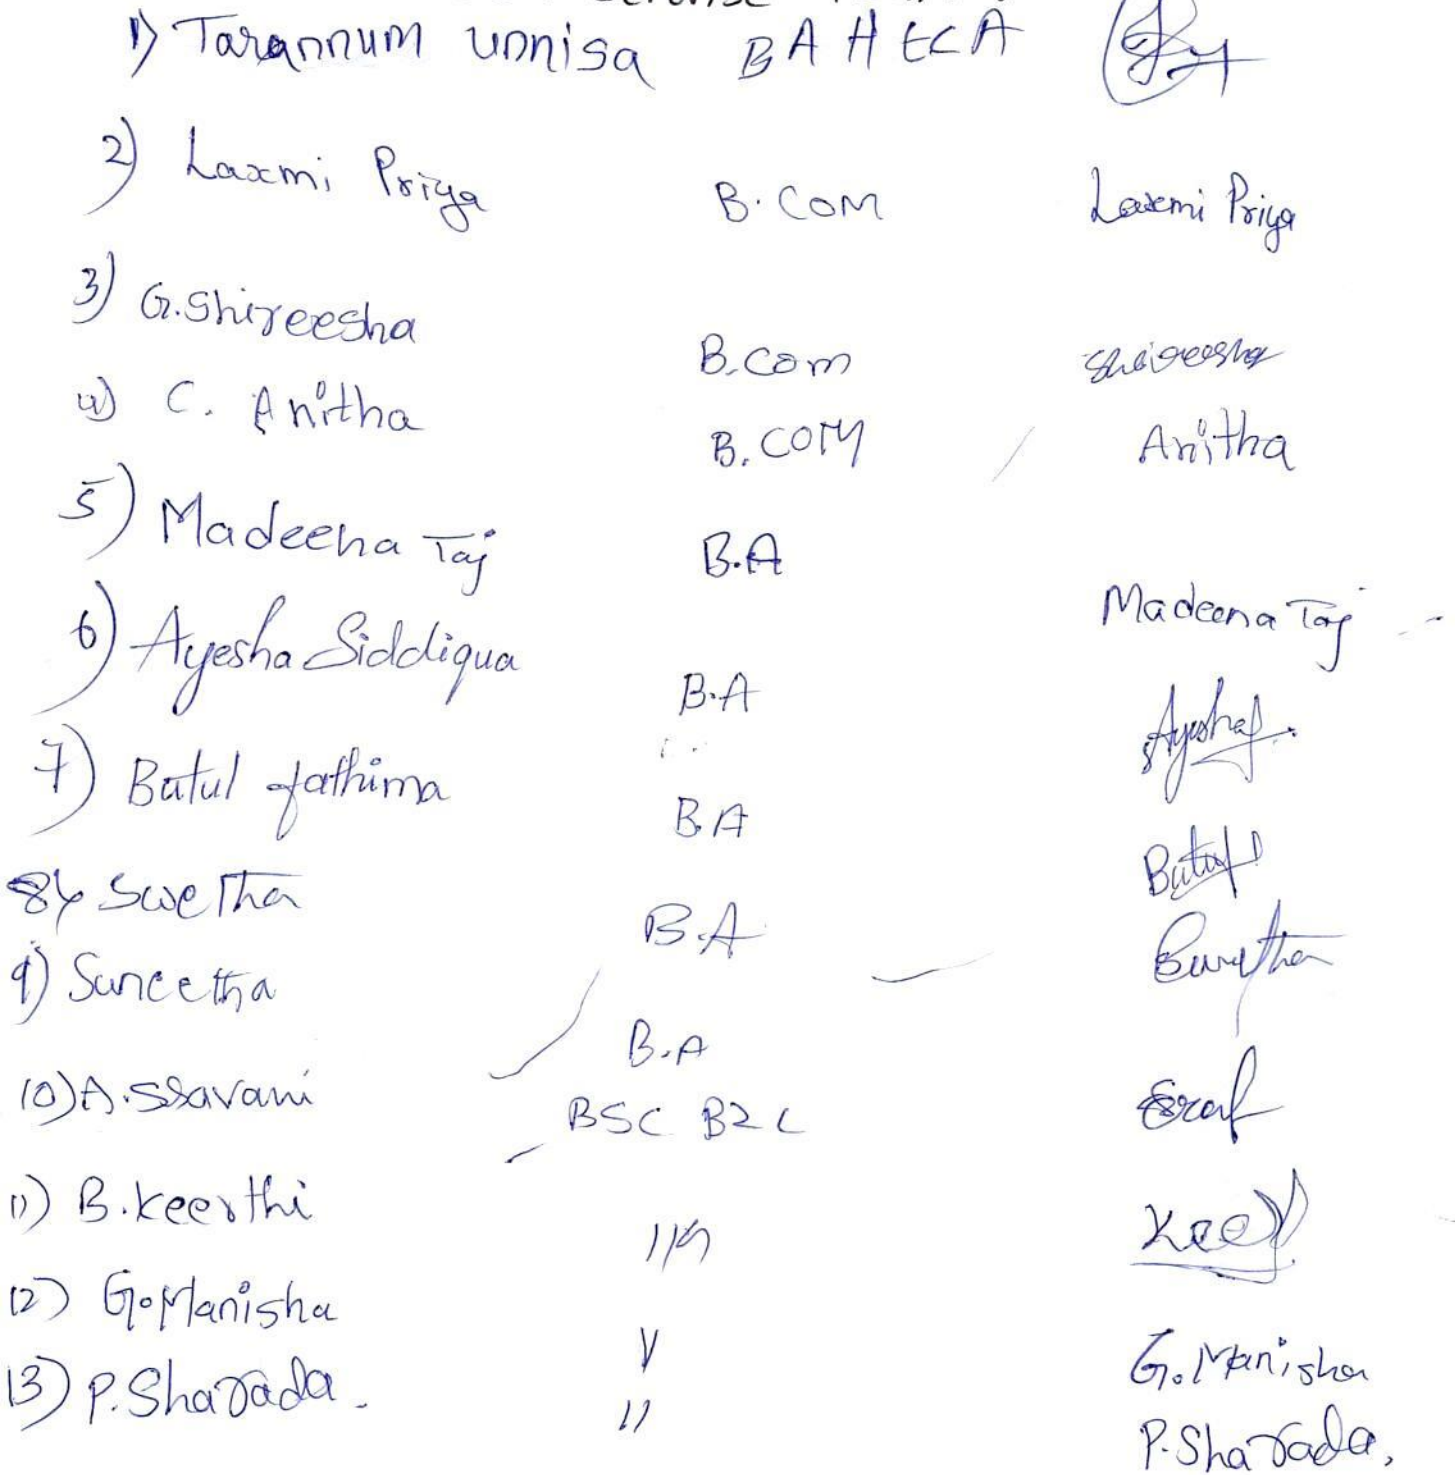 1) Tarannum unnisa BA HECA
2) Laxmi Priya B.COM Laxmi Priya
3) G.Shireesha B.Com Shireesha
4) C. Anitha B.COM Anitha
5) Madeena Taj B.A Madeena Taj
6) Ayesha Siddiqua B.A Ayesha
7) Batul fathima B.A Batul
8) Swetha B.A
9) Suneetha B.A Sunetha
10) A.Sravani BSC BZC
11) B.keerthi 11 Kee
12) G.Manisha 11 G.Manisha
13) P.Sharada. 11 P.Sharada,